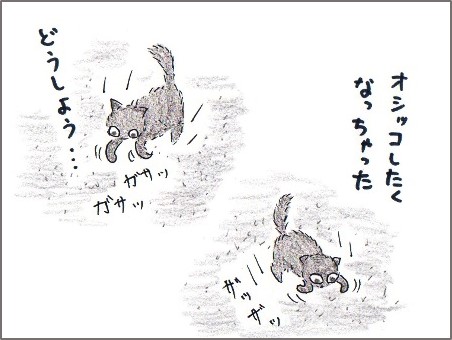 オシッコしたく
なっちゃった
どうしよう・・・
ガサッ
ガサッ
ザッ
ザッ